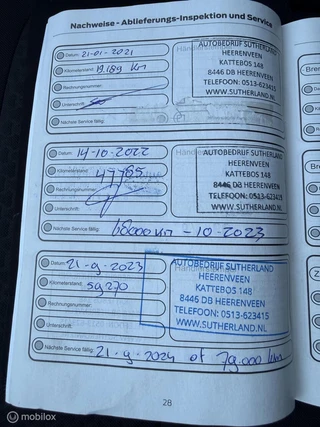 Nachweise - Ablieferungs-Inspektion und Service
Datum: 21-01-2021
Kilometerstand: 19.189 Km
Rechnungsnummer:
Unterschrift:
Nächste Service fällig:
AUTOBEDRIJF SUTHERLAND
HEERENVEEN
KATTEBOS 148
8446 DB HEERENVEEN
TELEFOON: 0513-623415
WWW.SUTHERLAND.NL
Datum: 14-10-2022
Kilometerstand: 47765
Rechnungsnummer:
Unterschrift:
Nächste Service fällig: - 10 - 2023
AUTOBEDRIJF SUTHERLAND
HEERENVEEN
KATTEBOS 148
8446 DB HEERENVEEN
TELEFOON: 0513-623415
WWW.SUTHERLAND.NL
Datum: 21-9-2023
Kilometerstand: 59270
Rechnungsnummer:
Unterschrift:
Nächste Service fällig: 21-9-2024 of 79.000 km
AUTOBEDRIJF SUTHERLAND
HEERENVEEN
KATTEBOS 148
8446 DB HEERENVEEN
TELEFOON: 0513-623415
WWW.SUTHERLAND.NL
28
© mobilox